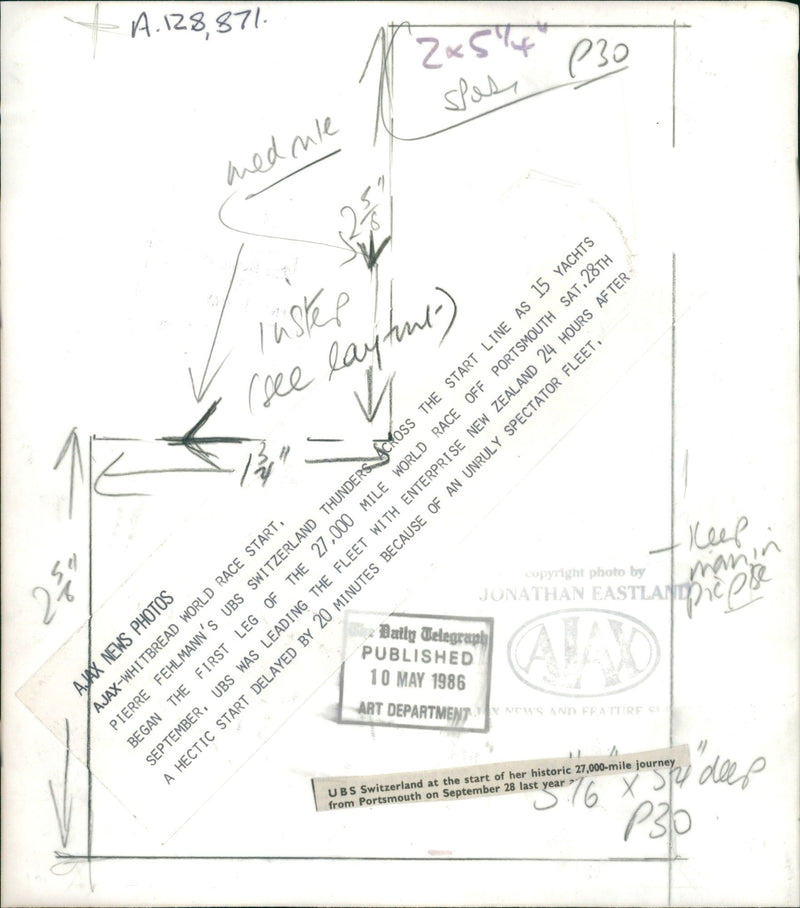 A.128,871.
2 x 5 1/4"
P30
med rule
2 5/8"
inster
(see layout)
1 3/4"
2 5/8"
AJAX NEWS PHOTOS
AJAX-WHITBREAD WORLD RACE START.
PIERRE FEHLMANN'S UBS SWITZERLAND THUNDERS ACROSS THE START LINE AS 15 YACHTS
BEGAN THE FIRST LEG OF THE 27,000 MILE WORLD RACE OFF PORTSMOUTH SAT.28TH
SEPTEMBER, UBS WAS LEADING THE FLEET WITH ENTERPRISE NEW ZEALAND 24 HOURS AFTER
A HECTIC START DELAYED BY 20 MINUTES BECAUSE OF AN UNRULY SPECTATOR FLEET.
Keep
man in
picture
copyright photo by
JONATHAN EASTLAND
AJAX
AJAX NEWS AND FEATURE
The Daily Telegraph
PUBLISHED
10 MAY 1986
ART DEPARTMENT
UBS Switzerland at the start of her historic 27,000-mile journey
from Portsmouth on September 28 last year
x 5 1/4" deep
P30